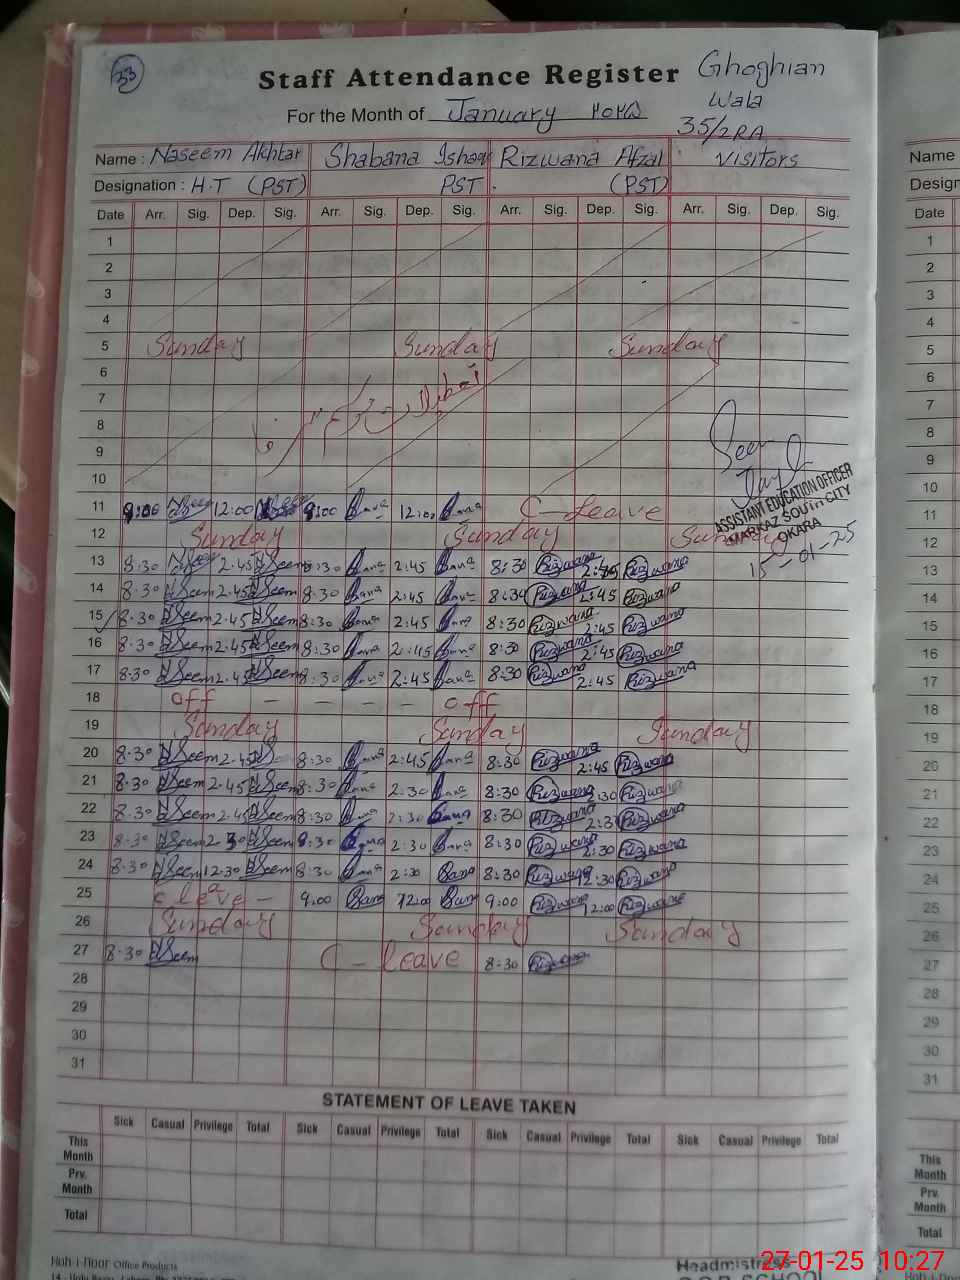 33
Staff Attendance Register Ghoghian
For the Month of January ۲۰۲۵ Wala
35/2RA
Name : Naseem Akhtar Shabana Ishaq Rizwana Afzal Visitors
Designation : H.T (PST) PST. (PST)
Date Arr. Sig. Dep. Sig. Arr. Sig. Dep. Sig. Arr. Sig. Dep. Sig. Arr. Sig. Dep. Sig.
1
2
3
4
5 Sunday Sunday Sunday
6
7
8
9
10
Seen
11 9:00 12:00 9:00 12:00 C-Leave
ASSISTANT EDUCATION OFFICER
MARKAZ SOUTH CITY
OKARA
15-01-25
12 Sunday Sunday Sunday
13 8:30 2:45 Seem 8:30 Bana 2:45 Bana 8:30 Rizwana 2:45 Rizwana
14 8:30 Seem 2:45 Seem 8:30 Bana 2:45 Bana 8:30 Rizwana 2:45 Rizwana
15 8:30 Seem 2:45 Seem 8:30 Bana 2:45 Bana 8:30 Rizwana 2:45 Rizwana
16 8:30 Seem 2:45 Seem 8:30 Bana 2:45 Bana 8:30 Rizwana 2:45 Rizwana
17 8:30 Seem 2:45 Seem 8:30 Bana 2:45 Bana 8:30 Rizwana 2:45 Rizwana
18 off - - - - off
19 Sunday Sunday Sunday
20 8:30 Seem 2:45 8:30 Bana 2:45 Bana 8:30 Rizwana 2:45 Rizwana
21 8:30 Seem 2:45 Seem 8:30 Bana 2:30 Bana 8:30 Rizwana 2:30 Rizwana
22 8:30 Seem 2:45 Seem 8:30 Bana 2:30 Bana 8:30 Rizwana 2:3 Rizwana
23 8:30 Seem 2:30 Seem 8:30 Bana 2:30 Bana 8:30 Rizwana 2:30 Rizwana
24 8:30 Seem 12:30 Seem 8:30 Bana 2:30 Bana 8:30 Rizwana 12:30 Rizwana
25 C leave - 9:00 Bana 12:00 Bana 9:00 Rizwana 12:00 Rizwana
26 Sunday Sunday Sunday
27 8:30 Seem C - leave 8:30 Rizwana
28
29
30
31
STATEMENT OF LEAVE TAKEN
Sick Casual Privilege Total Sick Casual Privilege Total Sick Casual Privilege Total Sick Casual Privilege Total
This
Month
Prv.
Month
Total
Office Products
Headmistress
Name
Date
1
2
3
4
5
6
7
8
9
10
11
12
13
14
15
16
17
18
19
20
21
22
23
24
25
26
27
28
29
30
31
This
Month
Prv.
Month
Total
27-01-25 10:27